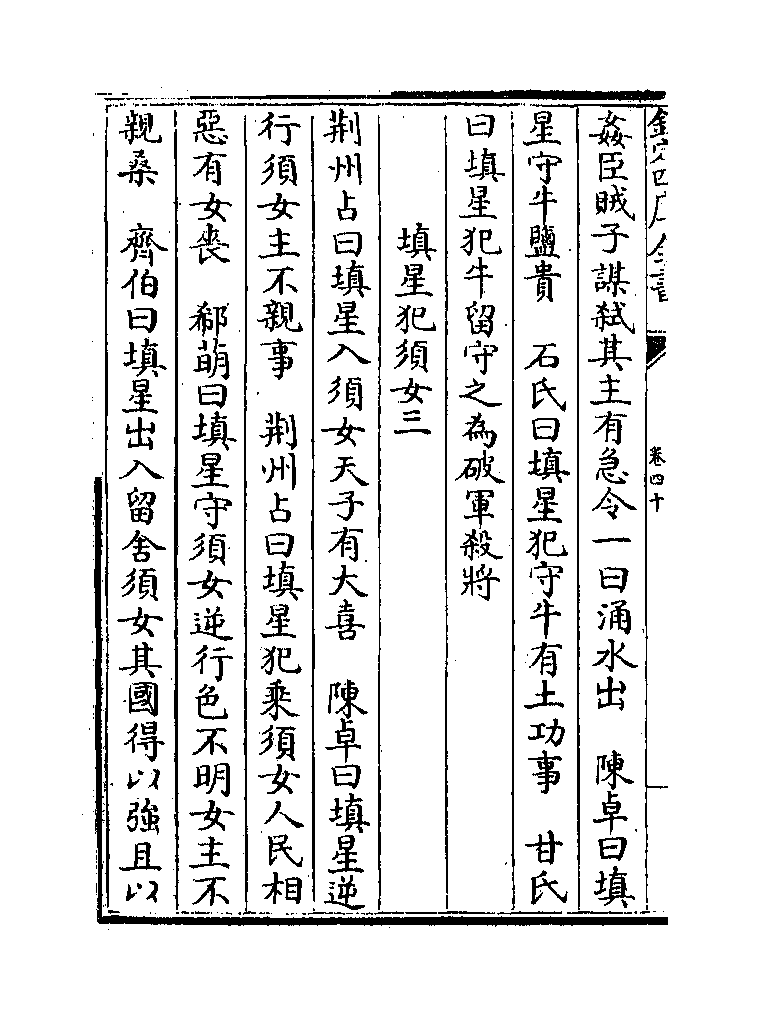 欽定四庫全書
卷四十
姦臣賊子謀弑其主有急令一曰涌水出　陳卓曰填
星守牛鹽貴　石氏曰填星犯守牛有土功事　甘氏
曰填星犯牛留守之為破軍殺將
填星犯須女三
荆州占曰填星入須女天子有大喜　陳卓曰填星逆
行須女主不親事　荆州占曰填星犯乘須女人民相
惡有女喪　郗萌曰填星守須女逆行色不明女主不
親桑　齊伯曰填星出入留舍須女其國得以強且以